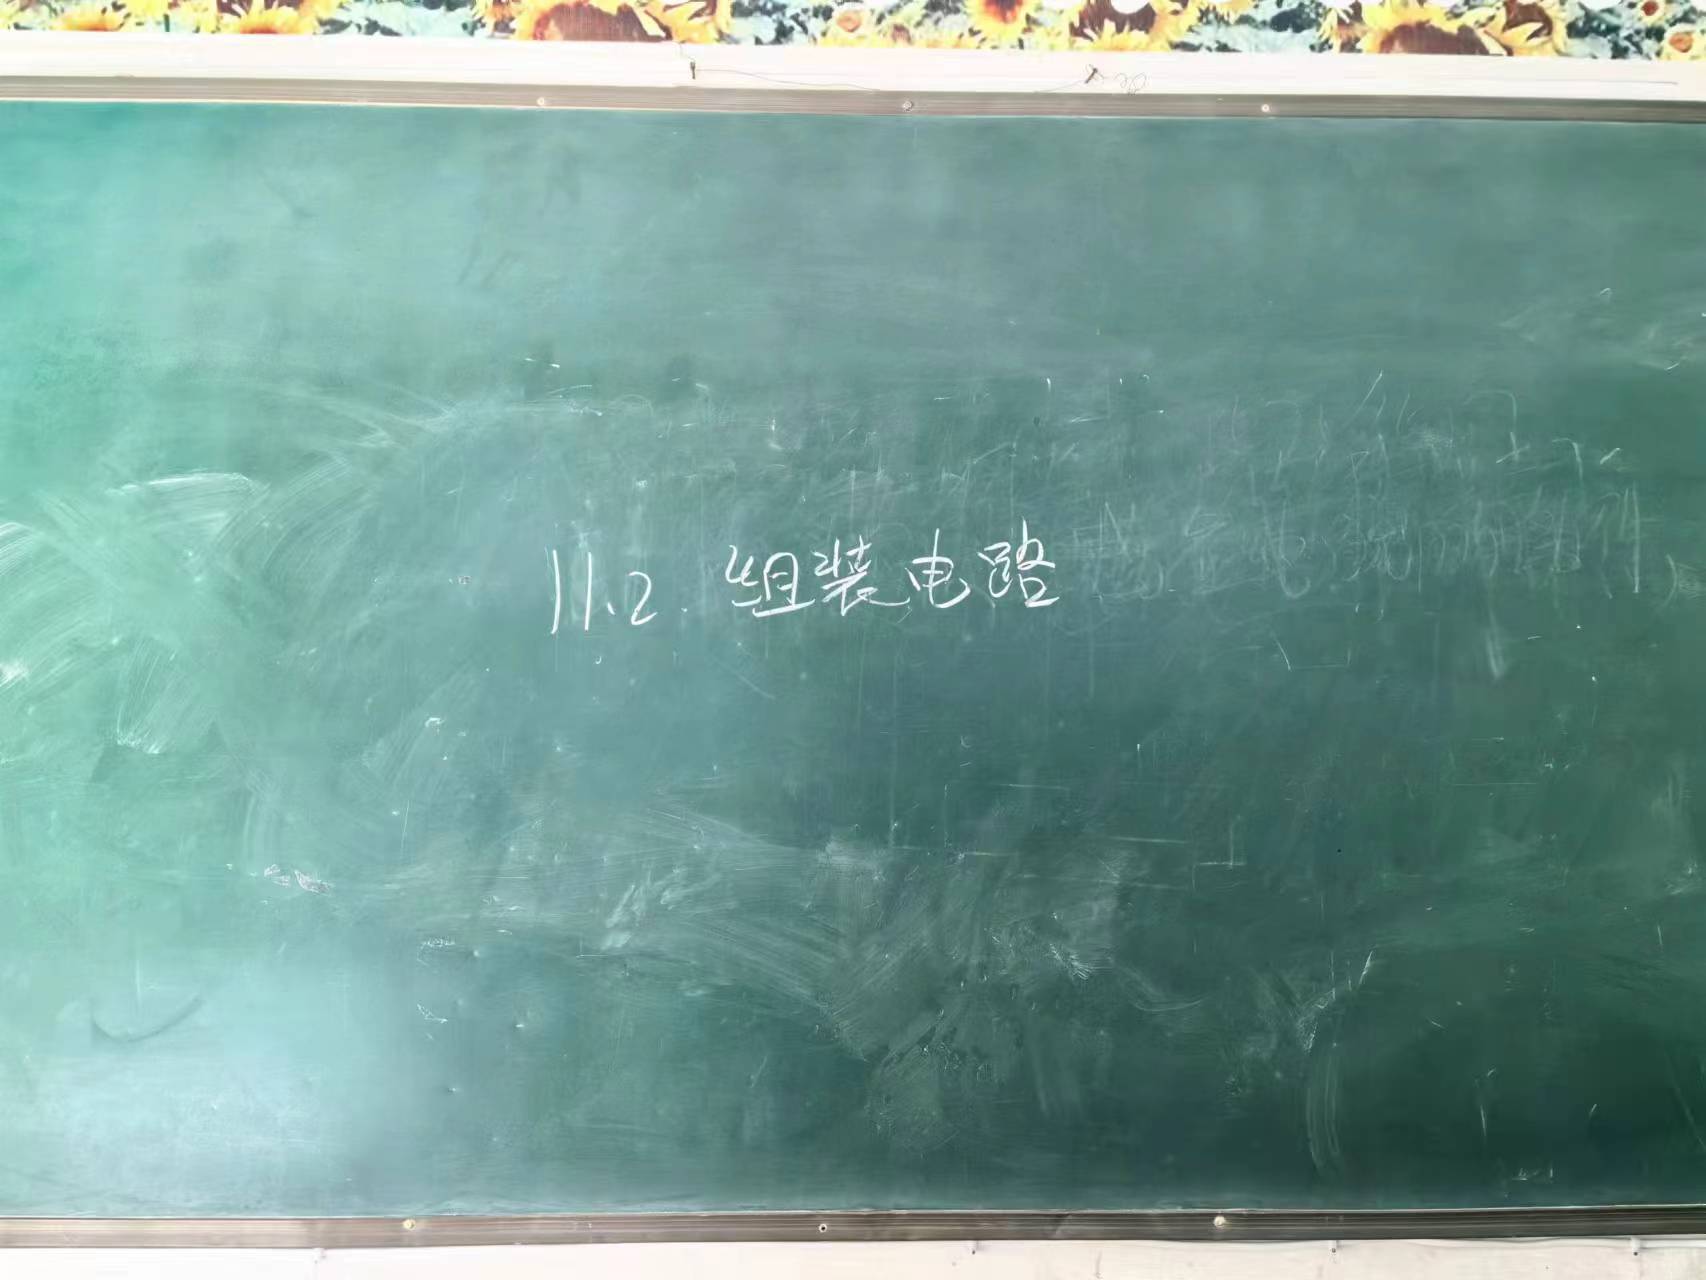 11.2. 组装电路